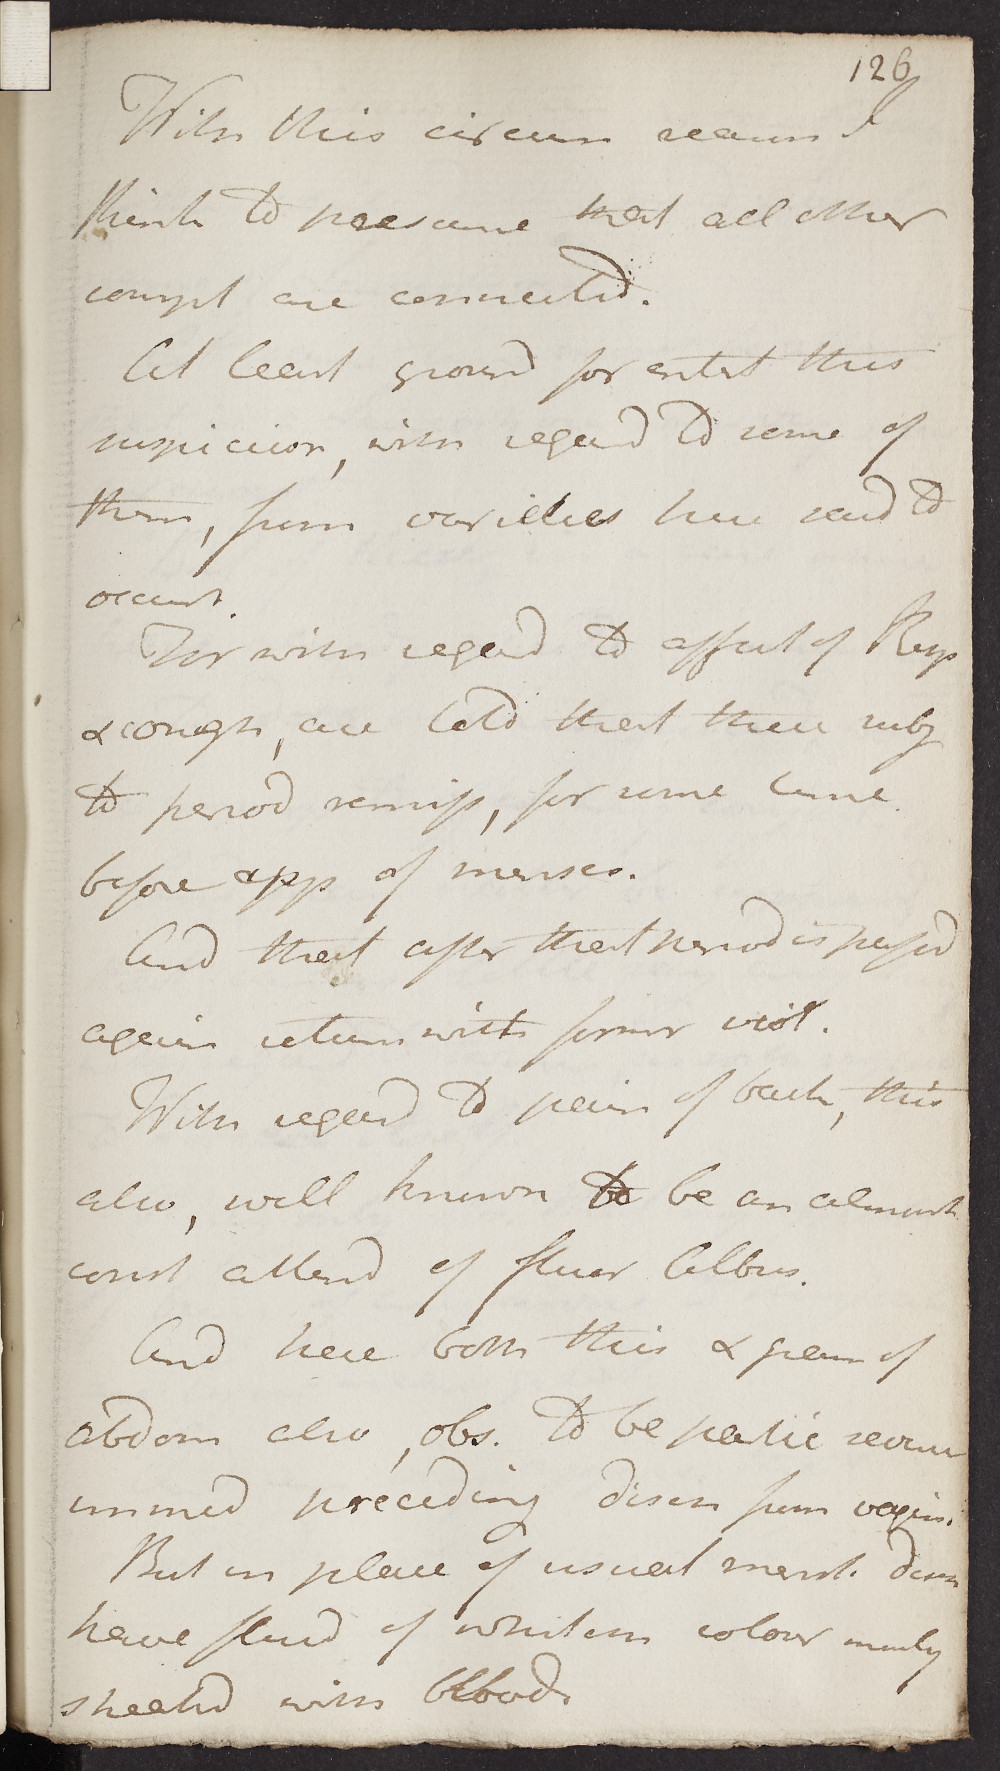 126
With this circum reason I
think to presume that all other
compl are connected.
At least ground for entert this
suspicion, with regard to some of
them, from varieties here said to
occur.
For with regard to affect of Resp
& cough, are told that these subj
to period remiss, for some time
before app of menses.
And that after that period is passed
again return with former viol.
With regard to pain of back, this
also, well known to be an almost
const attend of fluor Albus.
And here both this & pain of
abdom also, obs. to be partic severe
immed preceding disch from vagin.
But in place of usual menst. disch
have fluid of whitish colour
streak'd with blood